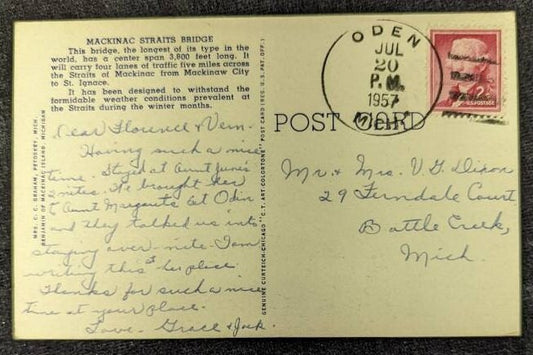 MACKINAC STRAITS BRIDGE
This bridge, the longest of its type in the
world, has a center span 3,800 feet long. It
will carry four lanes of traffic five miles across
the Straits of Mackinac from Mackinaw City
to St. Ignace.
It has been designed to withstand the
formidable weather conditions prevalent at
the Straits during the winter months.
Dear Florence & Vern.
Having such a nice
time. Stayed at Aunt June's
2 nites. We brought her
to Aunt Margarets at Oden
and they talked us into
staying over-nite. I am
writing this at her place.
Thanks for such a nice
time at your place.
Love. Grace & Jack.
MRS. C. C. GRAHAM, PETOSKEY, MICH.
BENJAMIN OF MACKINAC ISLAND, MICHIGAN
GENUINE CURTEICH-CHICAGO "C.T. ART-COLORTONE" POST CARD (REG. U.S. PAT. OFF.)
POST CARD
ODEN
JUL
20
P.M.
1957
MICH.
2¢
U.S. POSTAGE
Mr. & Mrs. V. G. Dixon
29 Ferndale Court
Battle Creek,
Mich.